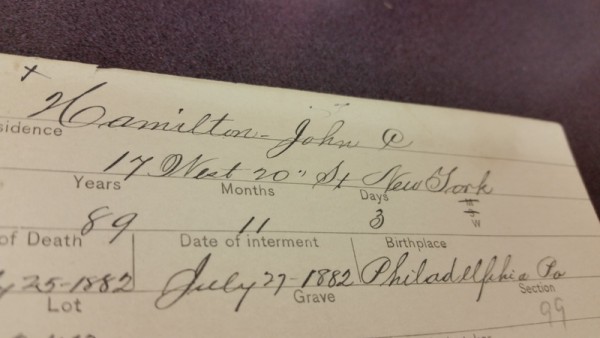 x
Hamilton - John C
sidence 17 West 20" St New York
Years 89 Months 11 Days 3 W
of Death 25-1882 Date of interment July 27-1882 Birthplace Philadelphia Pa
Lot Grave Section 99